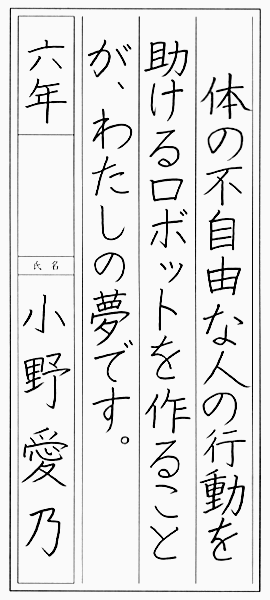 体の不自由な人の行動を
助けるロボットを作ること
が、わたしの夢です。
六年
氏名
小野愛乃